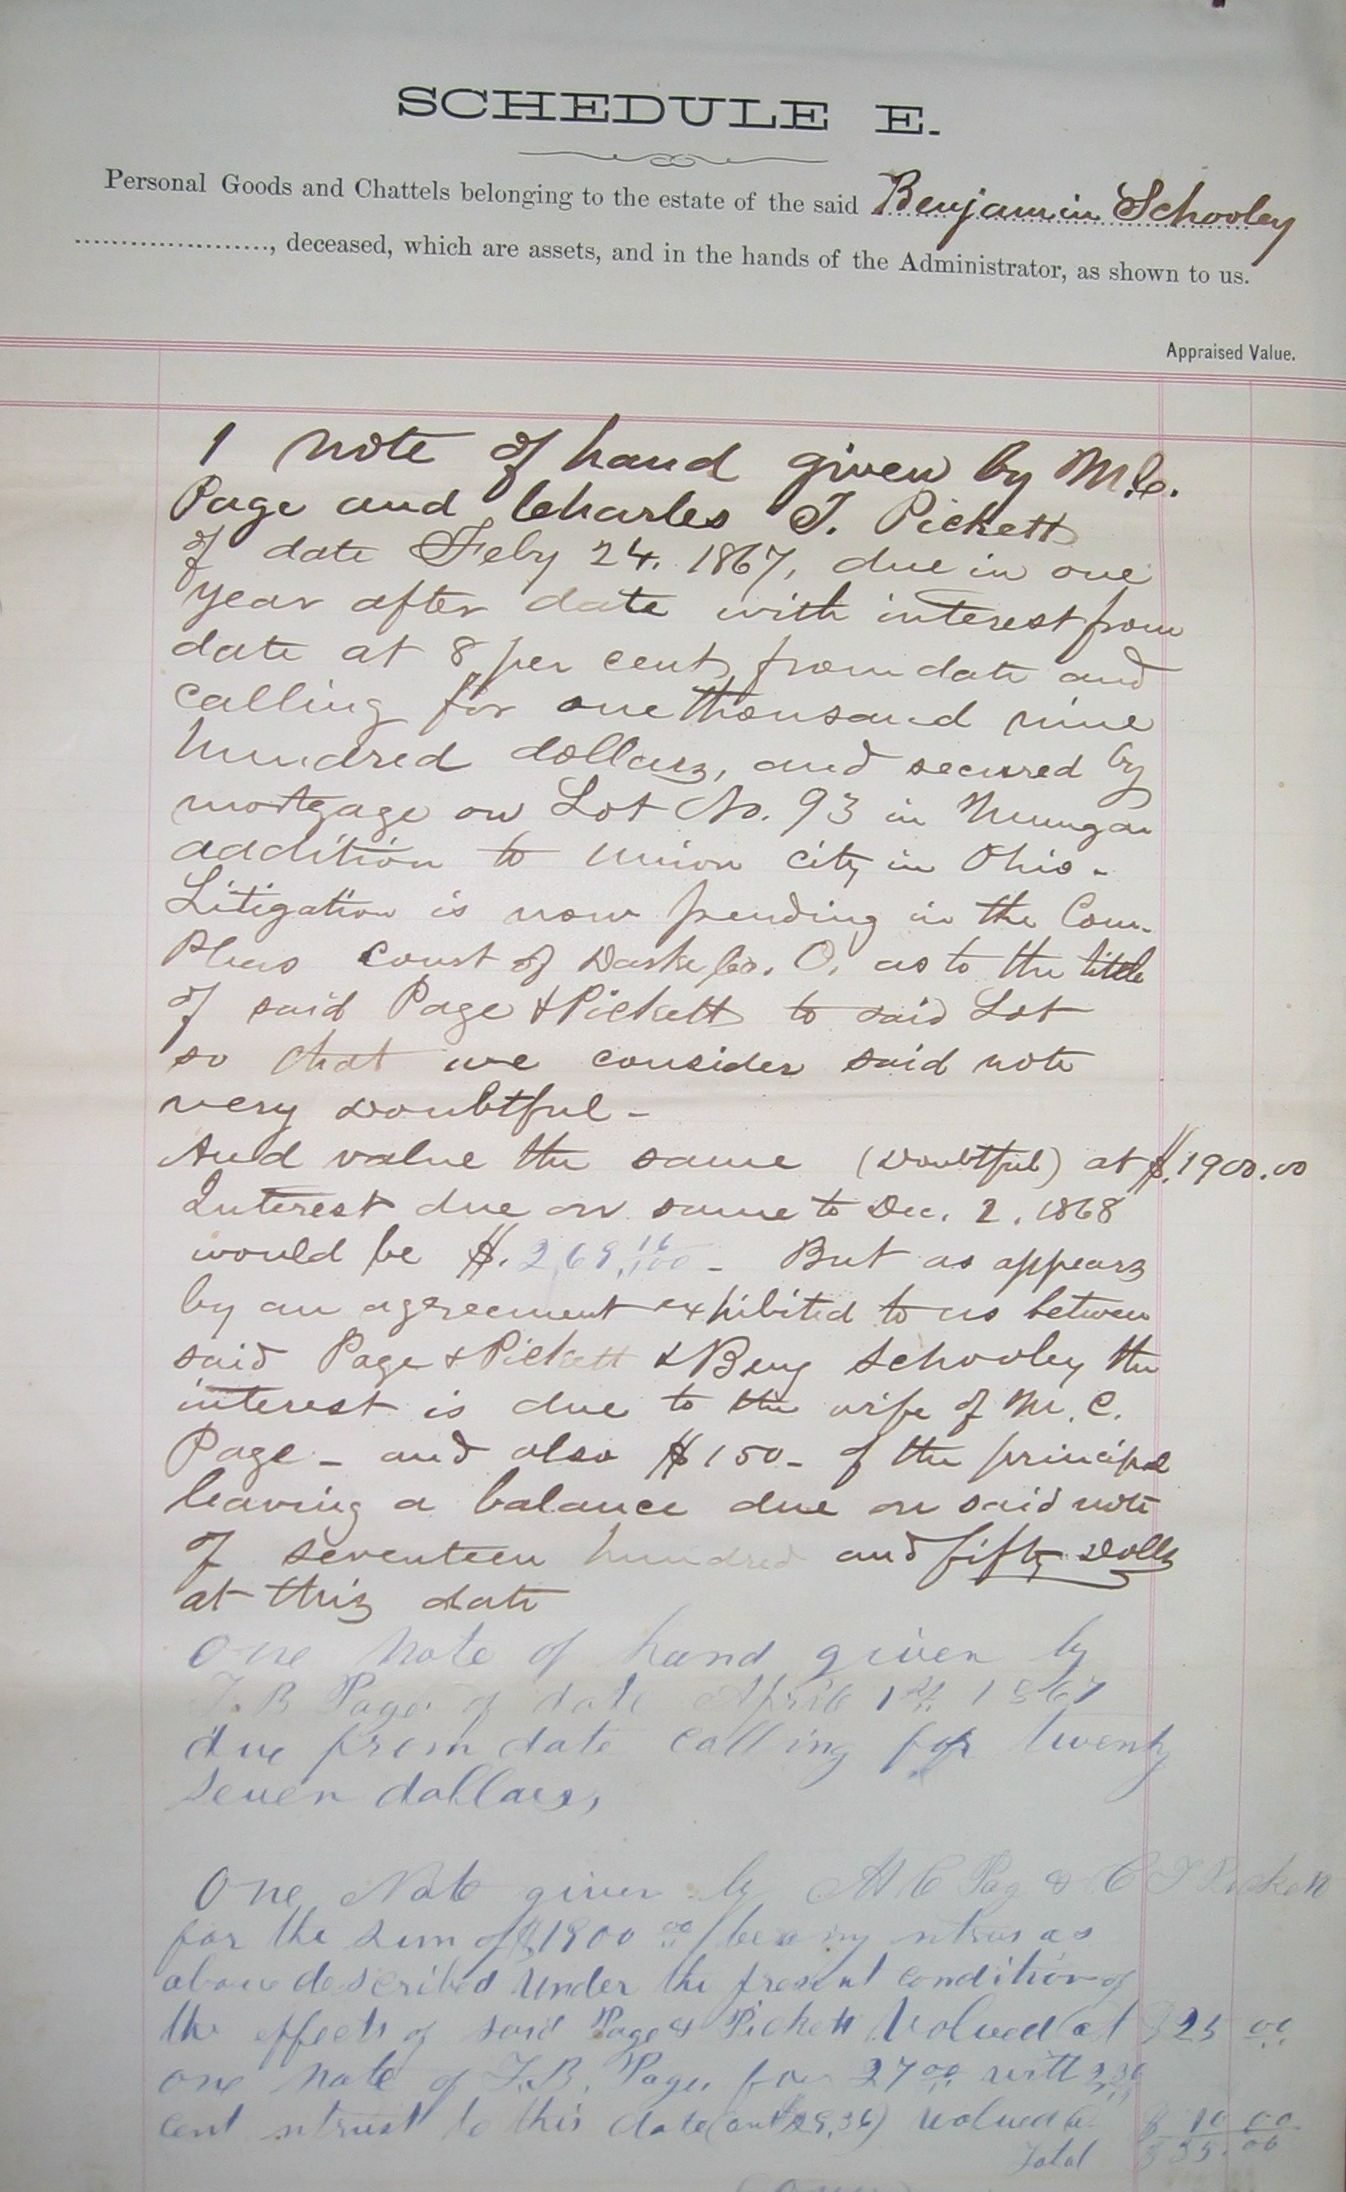 SCHEDULE E.
Personal Goods and Chattels belonging to the estate of the said Benjamin Schooley
...................., deceased, which are assets, and in the hands of the Administrator, as shown to us.
Appraised Value.
1 note of hand given by M.C.
Page and Charles T. Pickett
of date Feby 24. 1867, due in one
year after date with interest from
date at 8 per cent from date and
calling for one thousand nine
hundred dollars, and secured by
mortgage on Lot No. 93 in
addition to Union city in Ohio -
Litigation is now pending in the Com.
Pleas Court of Darke Co. O. as to the title
of said Page & Pickett to said Lot
so that we consider said note
very doubtful -
And value the same (Doubtful) at $.1900.00
Interest due on same to Dec. 2. 1868
would be $. 269, 16/100 - But as appears
by an agreement exhibited to us between
said Page & Pickett & Benj Schooley the
interest is due to the wife of M. C.
Page - and also $150 - of the principal
leaving a balance due on said note
of seventeen hundred and fifty Dolls
at this date
One Note of hand given by
T. B Page of date April 1st 1867
due from date calling for twenty
seven dollars,
One Note given by M C Pag & C T Pickett
for the sum of $1900 00 bearing as
above described under the present condition of
the effects of said Page & Pickett valued at $25 00
one note of T. B. Page, for 27 00 with
cent to this date (amt $29,36) valued $ 10 00
Total $ 35.00